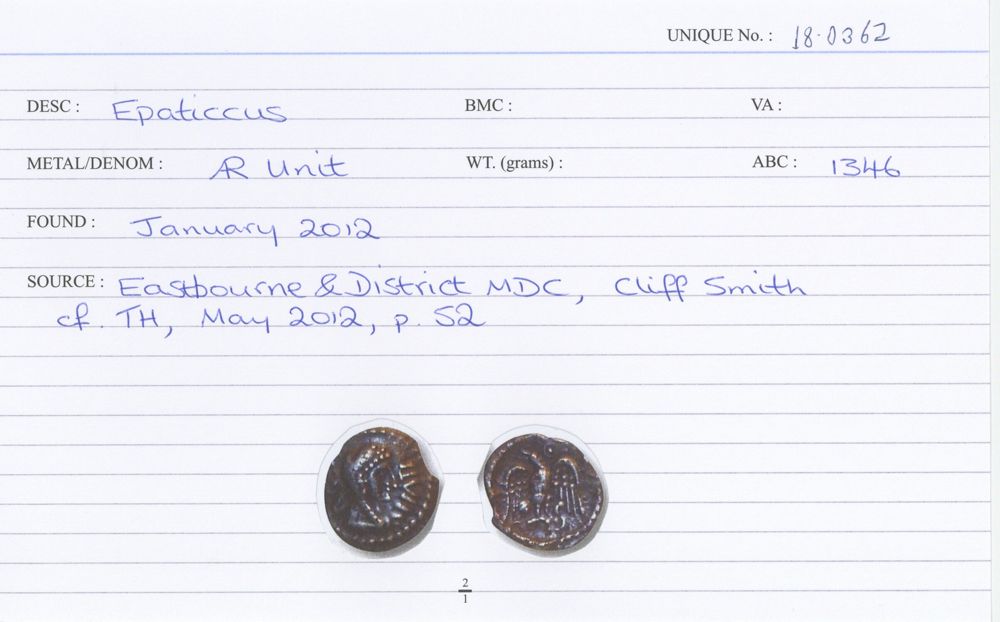 UNIQUE No. : 18.0362
DESC : Epaticcus BMC : VA :
METAL/DENOM : AR Unit WT. (grams) : ABC : 1346
FOUND : January 2012
SOURCE : Eastbourne & District MDC, Cliff Smith
cf. TH, May 2012, p. 52
2
1